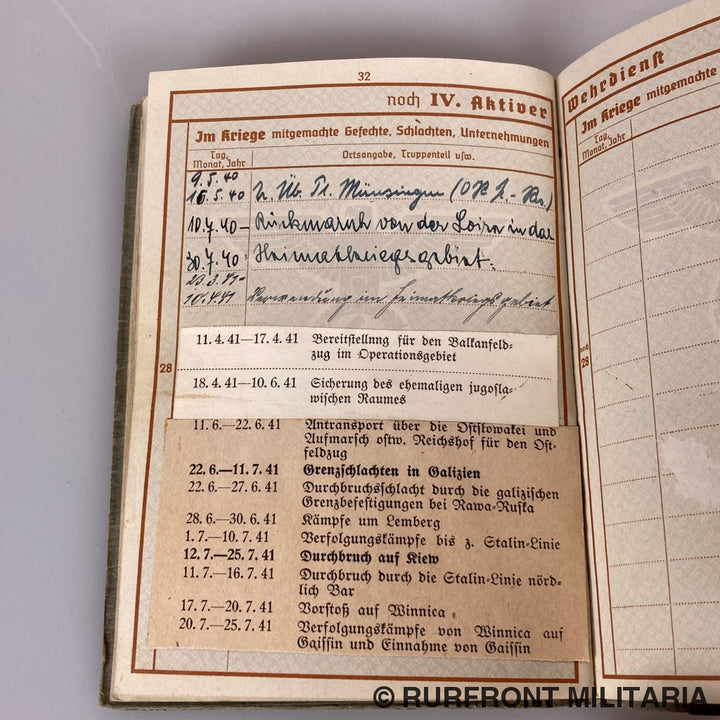 32
noch IV. Aktiver
Im Kriege mitgemachte Gefechte, Schlachten, Unternehmungen
Tag, Monat, Jahr
Ortsangabe, Truppenteil usw.
9.5.40
16.5.40 Tr. Üb. Pl. Münsingen
10.7.40 – Rückmarsch von der Loire in das
30.7.40: Heimatkriegsgebiet.
10.4.41 Verwendung im Heimatkriegsgebiet
28
11. 4. 41—17. 4. 41 Bereitstellnng für den Balkanfeld-
zug im Operationsgebiet
18. 4. 41—10. 6. 41 Sicherung des ehemaligen jugosla-
wischen Raumes
11. 6.—22. 6. 41 Antransport über die Ostslowakei und
Aufmarsch ostw. Reichshof für den Ost-
feldzug
22. 6.—11. 7. 41 Grenzschlachten in Galizien
22. 6.—27. 6. 41 Durchbruchsschlacht durch die galizischen
Grenzbefestigungen bei Rawa-Ruska
28. 6.—30. 6. 41 Kämpfe um Lemberg
1. 7.—10. 7. 41 Verfolgungskämpfe bis z. Stalin-Linie
12. 7.—25. 7. 41 Durchbruch auf Kiew
11. 7.—16. 7. 41 Durchbruch durch die Stalin-Linie nörd-
lich Bar
17. 7.—20. 7. 41 Vorstoß auf Winnica
20. 7.—25. 7. 41 Verfolgungskämpfe von Winnica auf
Gaissin und Einnahme von Gaissin
Wehrdienst
Im Kriege mitgemachte
Tag, Monat, Jahr
28
© RURFRONT MILITARIA